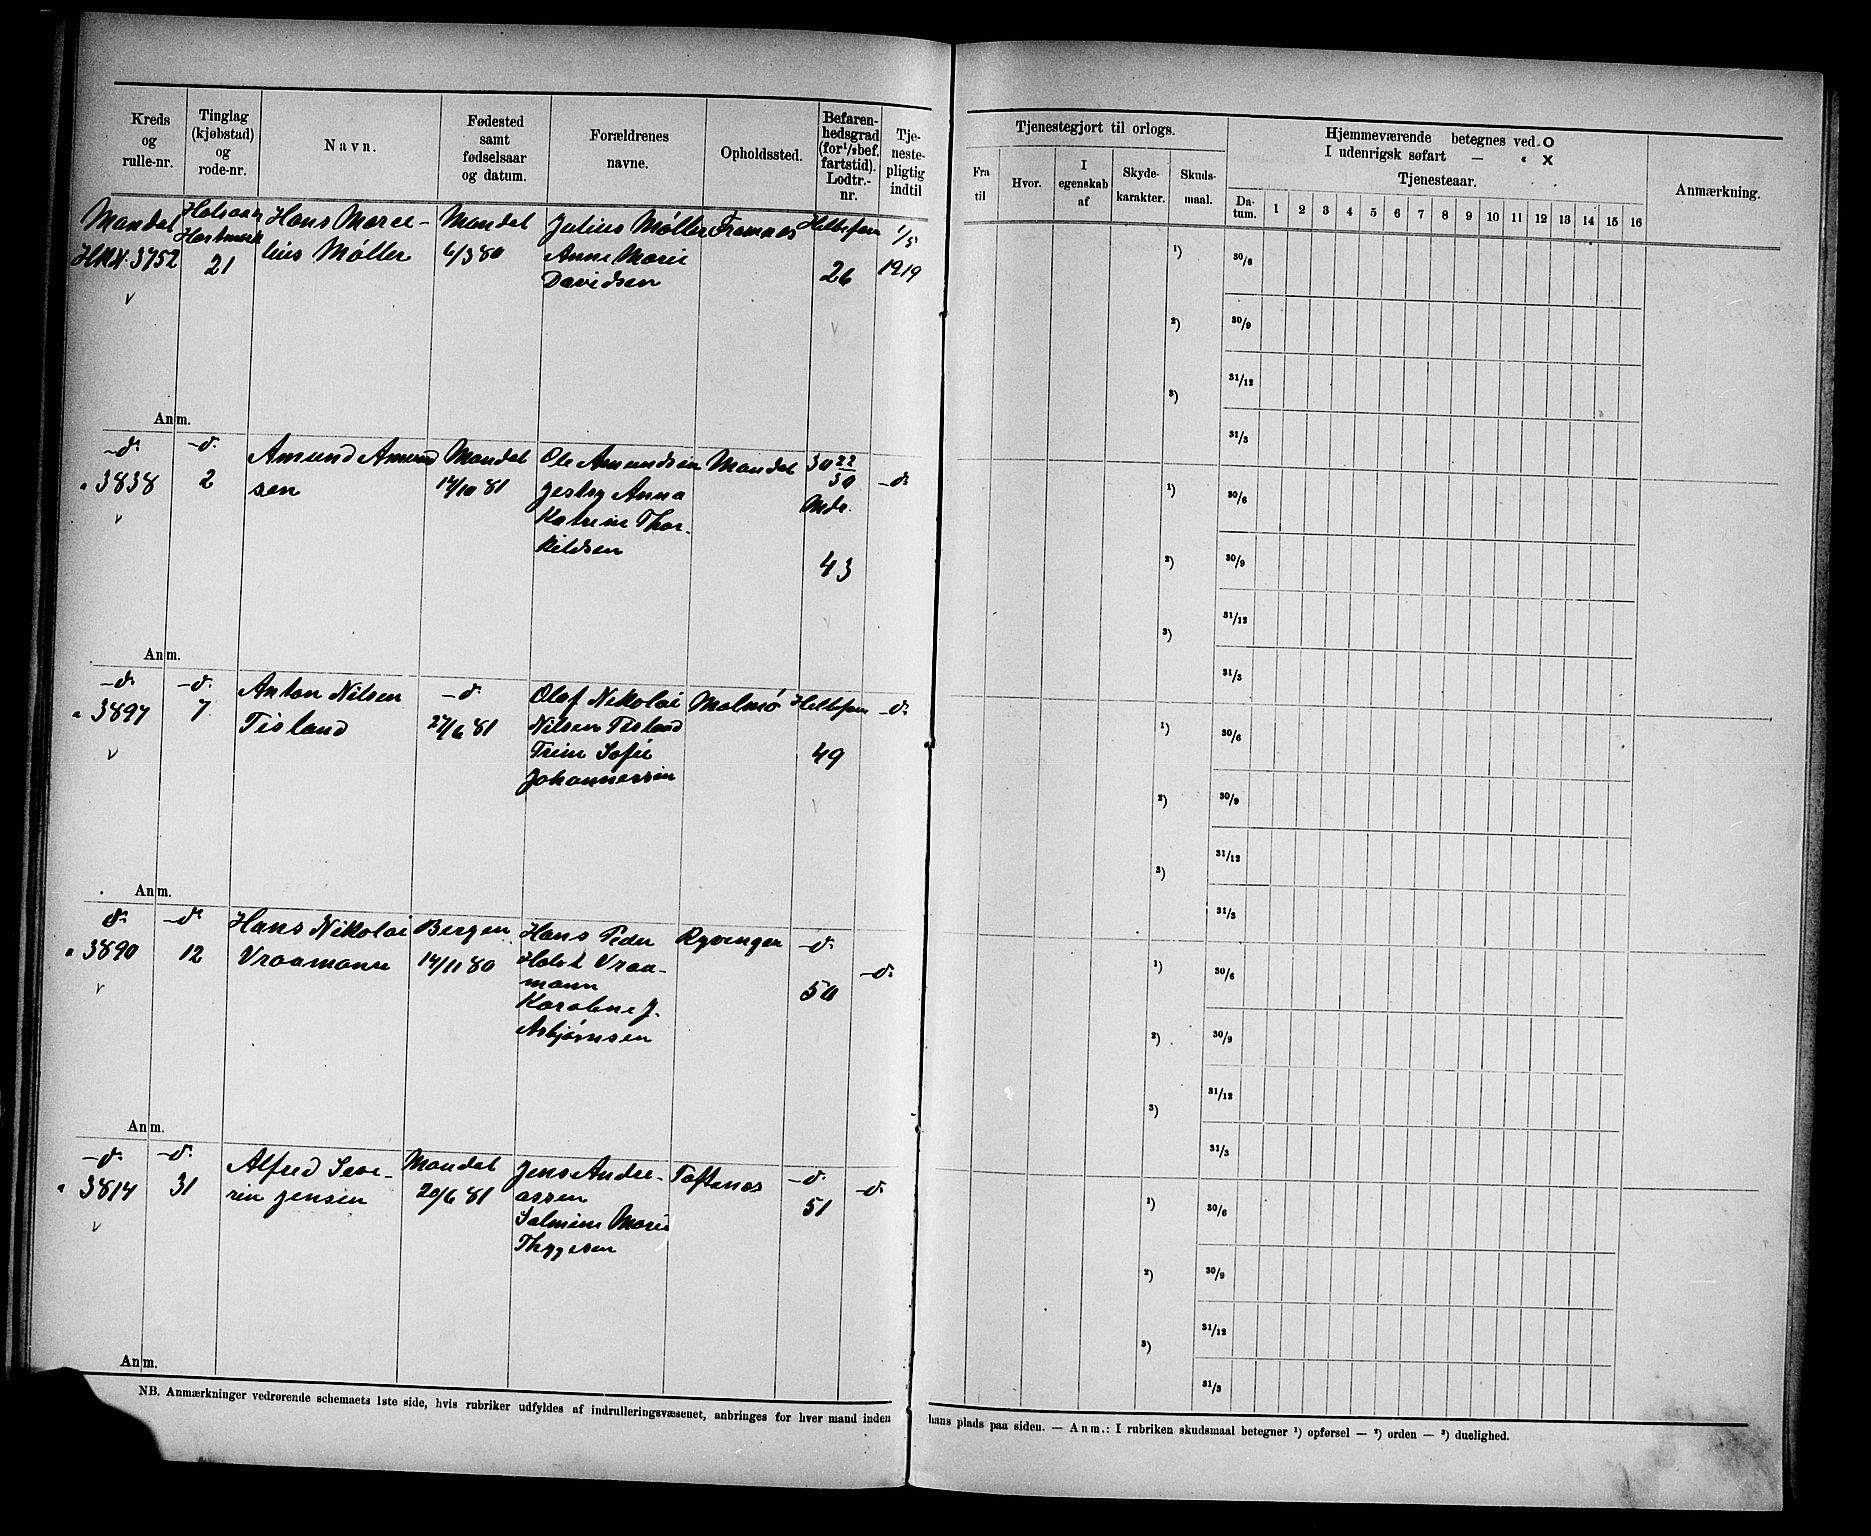 Kreds
og
rulle-nr.
Tinglag
(kjøbstad)
og
rode-nr.
Navn.
Fødested
samt
fødselsaar
og datum.
Forældrenes
navne.
Opholdssted.
Befaren-
hedsgrad
(for 1/2 bef.
fartstid).
Lodtr.-
nr.
Tje-
neste-
pligtig
indtil
Mandal
3752
v
21
Hans Marce-
lius Møller
Mandal
6/3 80
Julius Møller
Anne Marie
Davidsen
Framnes
Helbefarn
26
1/5
1919
Anm.
-d-
" 3838
v
-d-
2
Amund Amund
sen
Mandal
17/10 81
Ole Amundsen
Anna
Katrine Thor-
kildsen
Mandal
30 22/30
Mdr.
43
-d-
Anm.
-d-
" 3897
v
-d-
7
Anton Nilsen
Tisland
-d-
27/6 81
Olaf Nikolai
Nilsen Tisland
Trine Sofie
Johannessen
Malmø
Helbefarn
49
-d-
Anm.
-d-
" 3890
v
-d-
12
Hans Nikolai
Vraamann
Bergen
14/11 80
Hans Peder
Holst Vraa-
mann
Karoline J.
Asbjørnsen
Ryvingen
-d-
50
-d-
Anm.
-d-
" 3814
v
-d-
31
Alfred Seve-
rin Jensen
Mandal
20/6 81
Jens Andre-
assen
Salmine Marie
Thygesen
Toftenes
-d-
51
-d-
Anm.
NB. Anmærkninger vedrørende schemaets 1ste side, hvis rubriker udfyldes af indrulleringsvæsenet, anbringes for hver mand inden
Tjenestegjort til orlogs.
Fra
til
Hvor.
I
egenskab
af
Skyde-
karakter.
Skuds-
maal.
Hjemmeværende betegnes ved O
I udenrigsk søfart — " X
Tjenesteaar.
Da-
tum.
1 2 3 4 5 6 7 8 9 10 11 12 13 14 15 16
Anmærkning.
1)
30/6
2)
30/9
31/12
3)
31/3
1)
30/6
2)
30/9
31/12
3)
31/3
1)
30/6
2)
30/9
31/12
3)
31/3
1)
30/6
2)
30/9
31/12
3)
31/3
1)
30/6
2)
30/9
31/12
3)
31/3
hans plads paa siden. — Anm.: I rubriken skudsmaal betegner 1) opførsel — 2) orden — 3) duelighed.